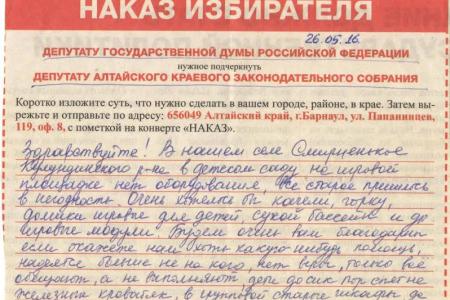 НАКАЗ ИЗБИРАТЕЛЯ
26.05.16.
ДЕПУТАТУ ГОСУДАРСТВЕННОЙ ДУМЫ РОССИЙСКОЙ ФЕДЕРАЦИИ
нужное подчеркнуть
ДЕПУТАТУ АЛТАЙСКОГО КРАЕВОГО ЗАКОНОДАТЕЛЬНОГО СОБРАНИЯ
Коротко изложите суть, что нужно сделать в вашем городе, районе, в крае. Затем вы-
режьте и отправьте по адресу: 656049 Алтайский край, г.Барнаул, ул. Папанинцев,
119, оф. 8, с пометкой на конверте «НАКАЗ».
Здравствуйте! В нашем селе
Кулундинского р-на в детском саду на игровой
площадке нет оборудования, все старое пришлось
в негодность. Очень хотелось бы качели, горку,
домики игровые для детей, сухой бассейн и др
игровые модули. Будем очень вам благодарны
если окажете нам хоть какую-нибудь помощь,
надеется больше не на кого, нет веры, только всё
обещают, а не выполняют, дети до сих пор спят на
железных кроватях, в групповой старые шкафы